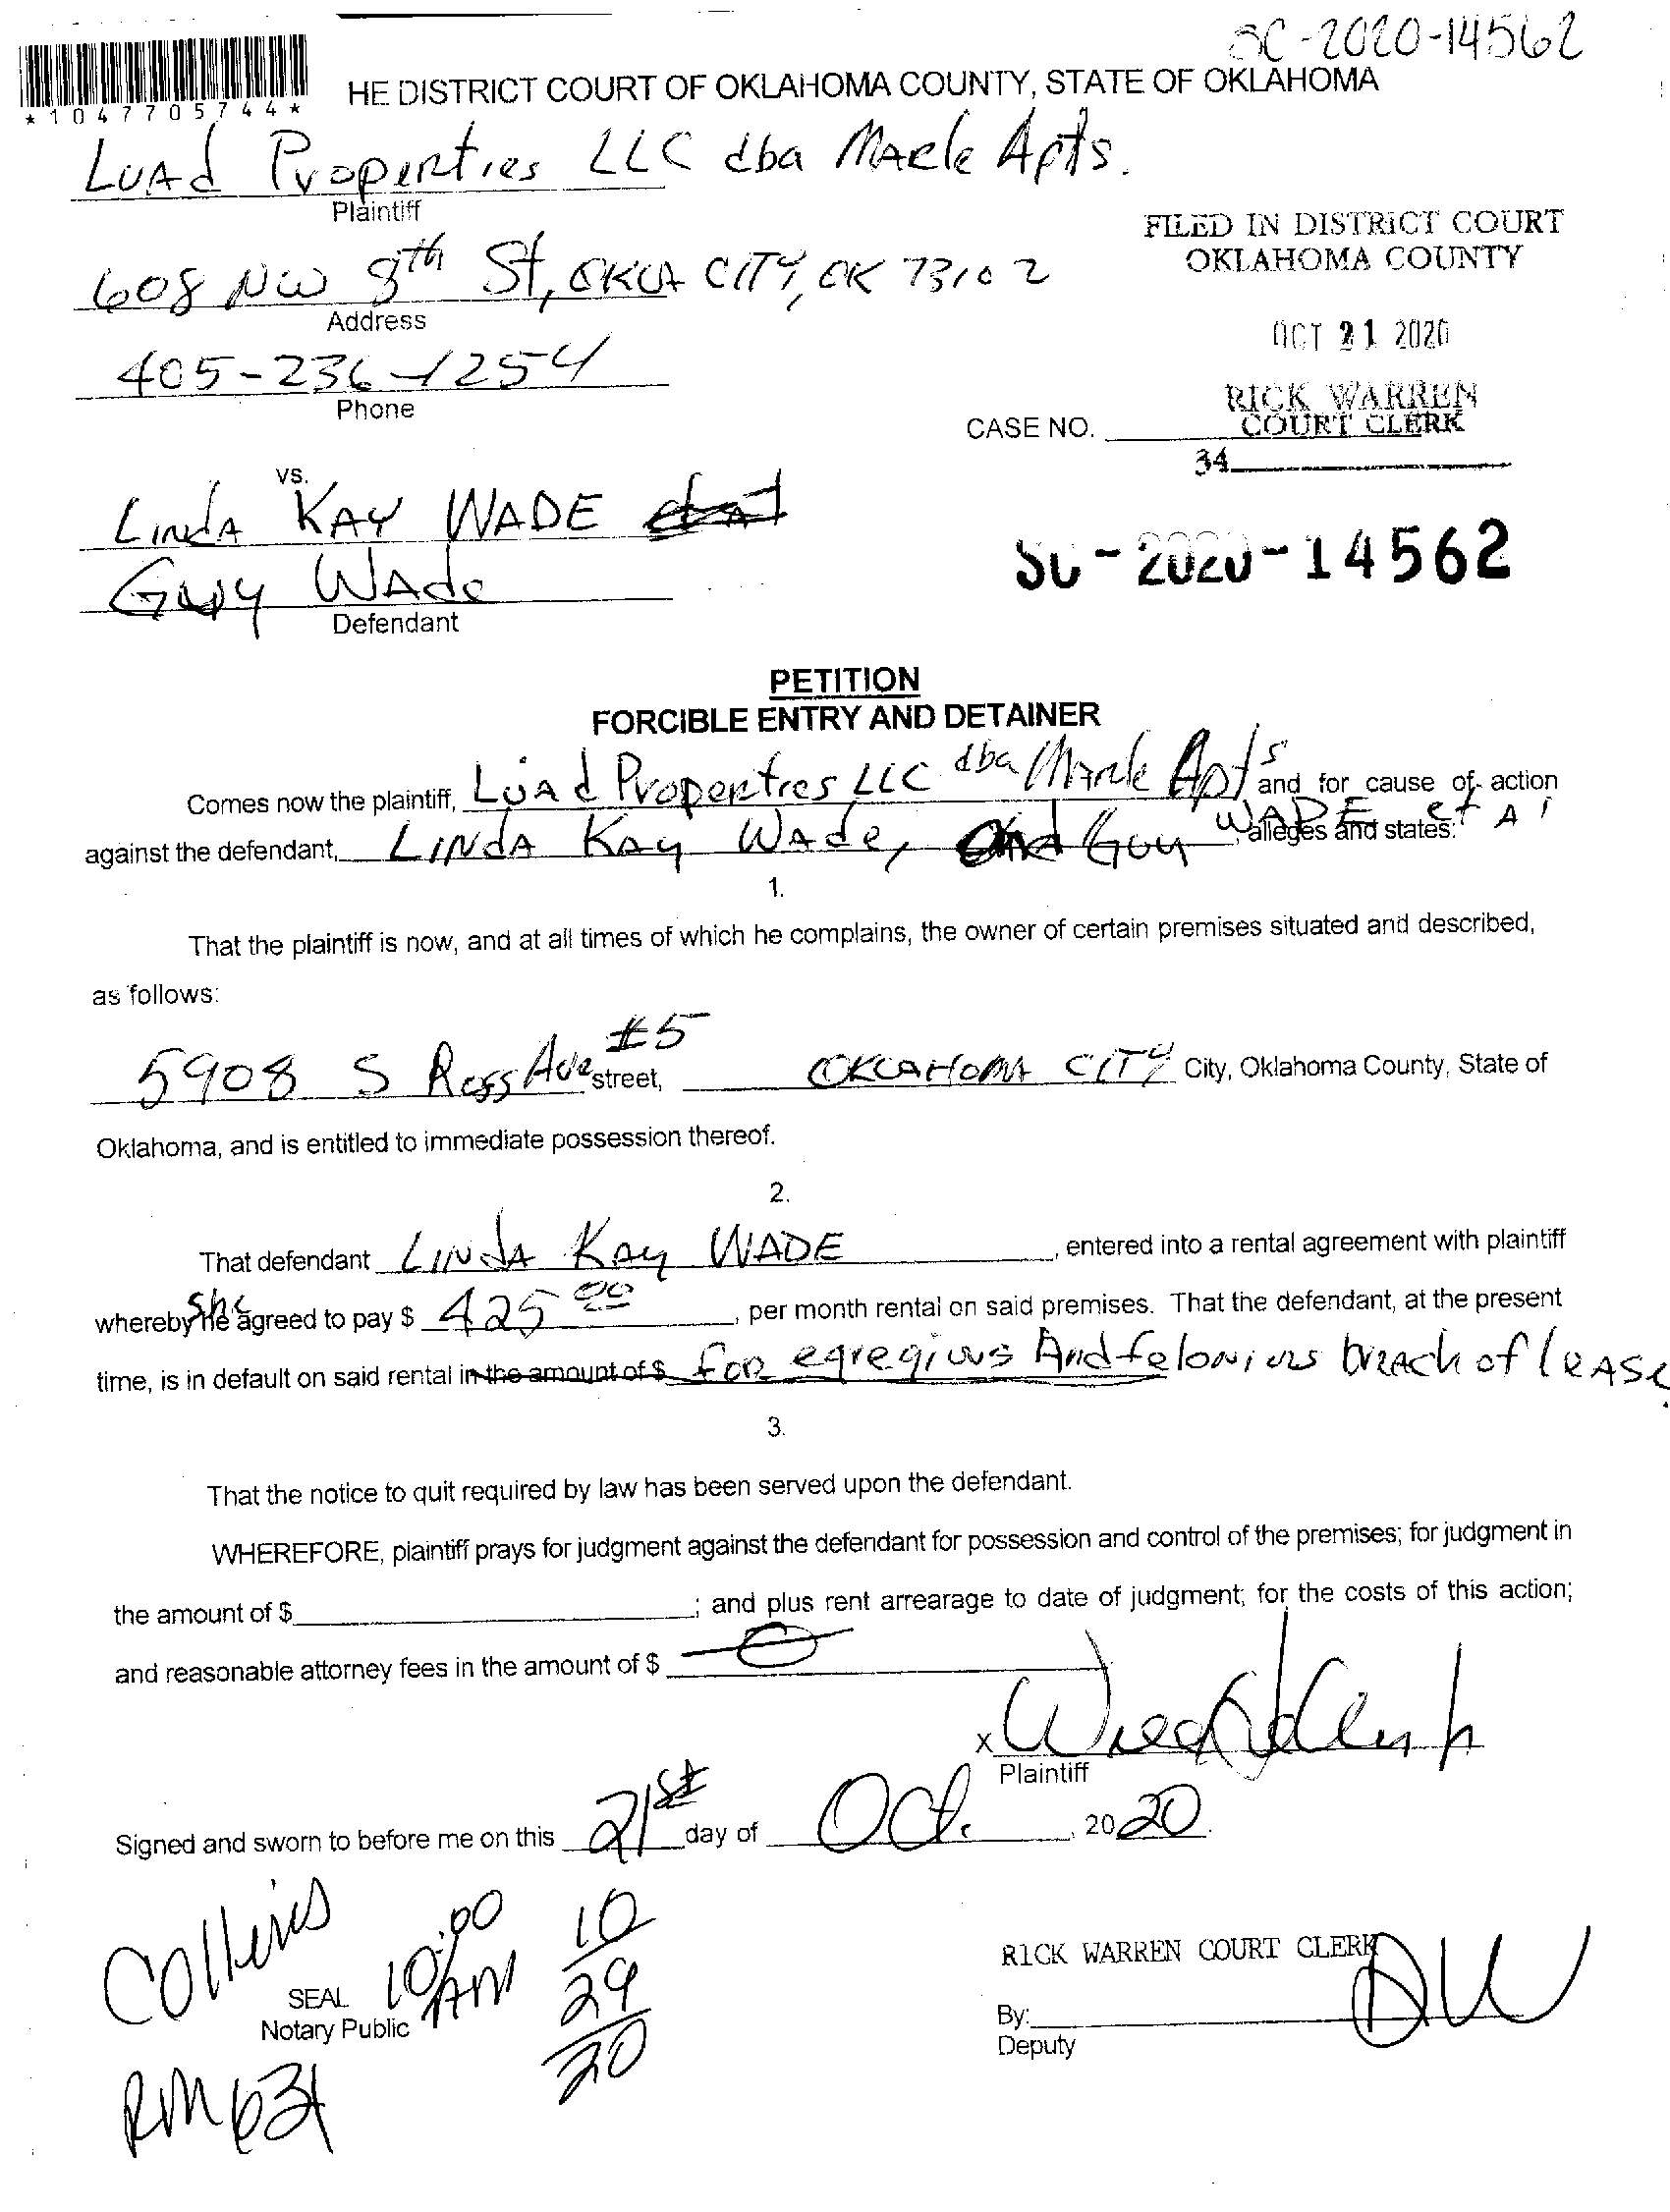 SC-2020-14562
*1047705744*
HE DISTRICT COURT OF OKLAHOMA COUNTY, STATE OF OKLAHOMA
LuAd Properties LLC dba MARK Apts.
Plaintiff
FILED IN DISTRICT COURT
OKLAHOMA COUNTY
608 NW 8th St, OKLA CITY, OK 73102
Address
OCT 21 2020
405-236-1254
Phone
RICK WARREN
COURT CLERK
CASE NO.
34
vs.
LINdA KAY WADE
Guy WAde
Defendant
SC-2020-14562
PETITION
FORCIBLE ENTRY AND DETAINER
Comes now the plaintiff, LuAd Properties LLC dba Mark Apts and for cause of action
against the defendant, LINdA Kay WAde, And Guy WADE et Al alleges and states:
1.
That the plaintiff is now, and at all times of which he complains, the owner of certain premises situated and described,
as follows:
5908 S Ross Ave #5 street, OKLAHOMA CITY City, Oklahoma County, State of
Oklahoma, and is entitled to immediate possession thereof.
2.
That defendant LINdA Kay WADE, entered into a rental agreement with plaintiff
whereby she agreed to pay $ 425 00, per month rental on said premises. That the defendant, at the present
time, is in default on said rental in the amount of $ FOR egregious And felonious breach of leASe.
3.
That the notice to quit required by law has been served upon the defendant.
WHEREFORE, plaintiff prays for judgment against the defendant for possession and control of the premises; for judgment in
the amount of $ ; and plus rent arrearage to date of judgment; for the costs of this action;
and reasonable attorney fees in the amount of $ 0
x
Plaintiff
Signed and sworn to before me on this 21st day of Oct. , 2020.
Collins 10:00 AM 10/29/20
SEAL
Notary Public
RICK WARREN COURT CLERK
By: DW
Deputy
RM 631